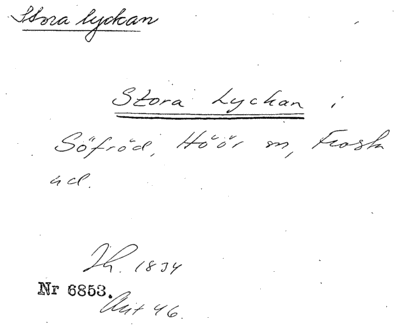 Stora lyckan
Stora Lyckan i
Söfröd, Höör m, Frosta
ud.
1834
Nr 6853.
46.